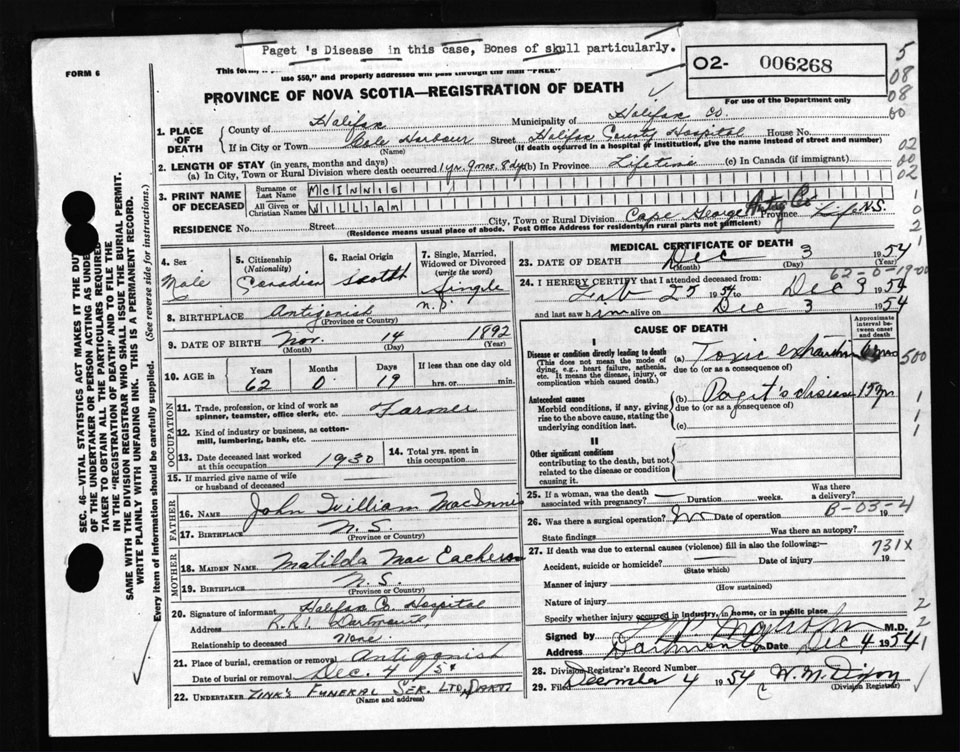 Paget's Disease in this case, Bones of skull particularly.
FORM 6
use $50," and properly addressed will pass through the mail "FREE"
PROVINCE OF NOVA SCOTIA—REGISTRATION OF DEATH
02- 006268
For use of the Department only
5
08
08
00
02
00
02
1. PLACE OF DEATH
County of Halifax Municipality of Halifax Co.
If in City or Town Cole Harbour (Name) Street Halifax County Hospital House No.
(If death occurred in a hospital or institution, give the name instead of street and number)
2. LENGTH OF STAY (in years, months and days)
(a) In City, Town or Rural Division where death occurred 1 yr. 9 mos. 8 dys (b) In Province Lifetime (c) In Canada (if immigrant)
3. PRINT NAME OF DECEASED
Surname or Last Name McINNIS
All Given or Christian Names WILLIAM
RESIDENCE No. Street City, Town or Rural Division Cape George Antig Co. Province Life N.S.
(Residence means usual place of abode. Post Office Address for residents in rural parts not sufficient)
4. Sex Male
5. Citizenship (Nationality) Canadian
6. Racial Origin Scotch
7. Single, Married, Widowed or Divorced (write the word) Single
8. BIRTHPLACE Antigonish N.S.
(Province or Country)
9. DATE OF BIRTH Nov. 14 1892
(Month) (Day) (Year)
10. AGE in Years Months Days If less than one day
62 0 19 hrs. or min.
OCCUPATION
11. Trade, profession, or kind of work as spinner, teamster, office clerk, etc. Farmer
12. Kind of industry or business, as cotton-mill, lumbering, bank, etc.
13. Date deceased last worked at this occupation 1930
14. Total yrs. spent in this occupation
15. If married give name of wife or husband of deceased
FATHER
16. NAME John William MacInnis
17. BIRTHPLACE N.S.
(Province or Country)
MOTHER
18. MAIDEN NAME Matilda MacEachern
19. BIRTHPLACE N.S.
(Province or Country)
20. Signature of informant Halifax Co. Hospital
Address R.R.1. Dartmouth
Relationship to deceased None
21. Place of burial, cremation or removal Antigonish
Date of burial or removal Dec. 4 1954
22. UNDERTAKER ZINK'S FUNERAL SER. LTD. DART.
(Name and address)
MEDICAL CERTIFICATE OF DEATH
23. DATE OF DEATH Dec 3 1954
(Month) (Day) (Year)
62-0-19-00
24. I HEREBY CERTIFY that I attended deceased from:
Feb 25 1954 to Dec 3 1954
and last saw him alive on Dec 3 1954
CAUSE OF DEATH
Approximate interval between onset and death
I
Disease or condition directly leading to death
(This does not mean the mode of dying, e.g., heart failure, asthenia, etc. It means the disease, injury, or complication which caused death.)
(a) Toxic exhaustion 6 mos
due to (or as a consequence of)
500
Antecedent causes
Morbid conditions, if any, giving rise to the above cause, stating the underlying condition last.
(b) Paget's disease 15 yr
due to (or as a consequence of)
(c)
II
Other significant conditions
contributing to the death, but not related to the disease or condition causing it.
25. If a woman, was the death associated with pregnancy? Duration weeks. Was there a delivery?
B-03-4
26. Was there a surgical operation? No Date of operation 19
State findings Was there an autopsy?
731X
27. If death was due to external causes (violence) fill in also the following:—
Accident, suicide or homicide? (State which) Date of injury 19
Manner of injury (How sustained)
Nature of injury
Specify whether injury occurred in industry, in home, or in public place
Signed by M.D.
Address Dartmouth Date Dec 4 1954
28. Division Registrar's Record Number
29. Filed December 4 1954 W. M. Dixon
(Division Registrar)
SEC. 46—VITAL STATISTICS ACT MAKES IT THE DUTY
OF THE UNDERTAKER OR PERSON ACTING AS UNDER
TAKER TO OBTAIN ALL THE PARTICULARS REQUIRED
IN THE "REGISTRATION OF DEATH" AND TO FILE THE
SAME WITH THE DIVISION REGISTRAR WHO SHALL ISSUE THE BURIAL PERMIT.
WRITE PLAINLY WITH UNFADING INK. THIS IS A PERMANENT RECORD.
Every item of information should be carefully supplied. (See reverse side for instructions.)